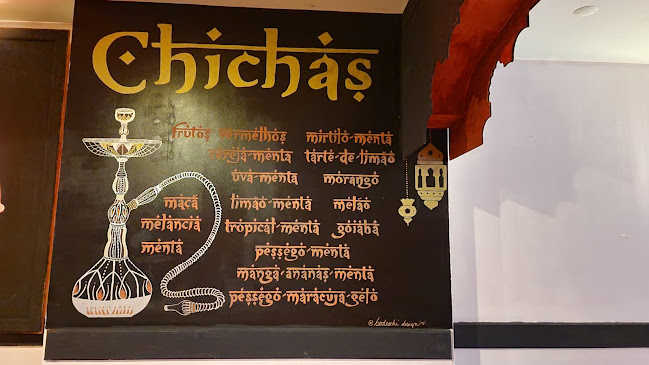 Chichas
frutos vermelhos mirtilo-menta
cereja-menta tarte-de-limão
uva-menta morango
maçã limão-menta melão
melancia tropical-menta goiaba
menta pêssego-menta
manga-ananás-menta
pêssego-maracujá-gelo
@tedeschi design